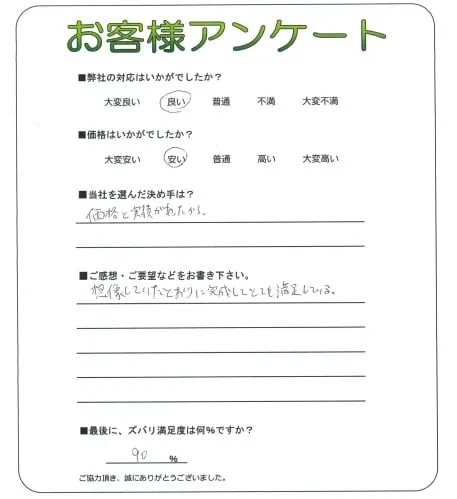 お客様アンケート
■弊社の対応はいかがでしたか？
大変良い 良い 普通 不満 大変不満
■価格はいかがでしたか？
大変安い 安い 普通 高い 大変高い
■当社を選んだ決め手は？
価格と実績があったから。
■ご感想・ご要望などをお書き下さい。
想像していたとおりに完成してとても満足している。
■最後に、ズバリ満足度は何%ですか？
90 %
ご協力頂き、誠にありがとうございました。